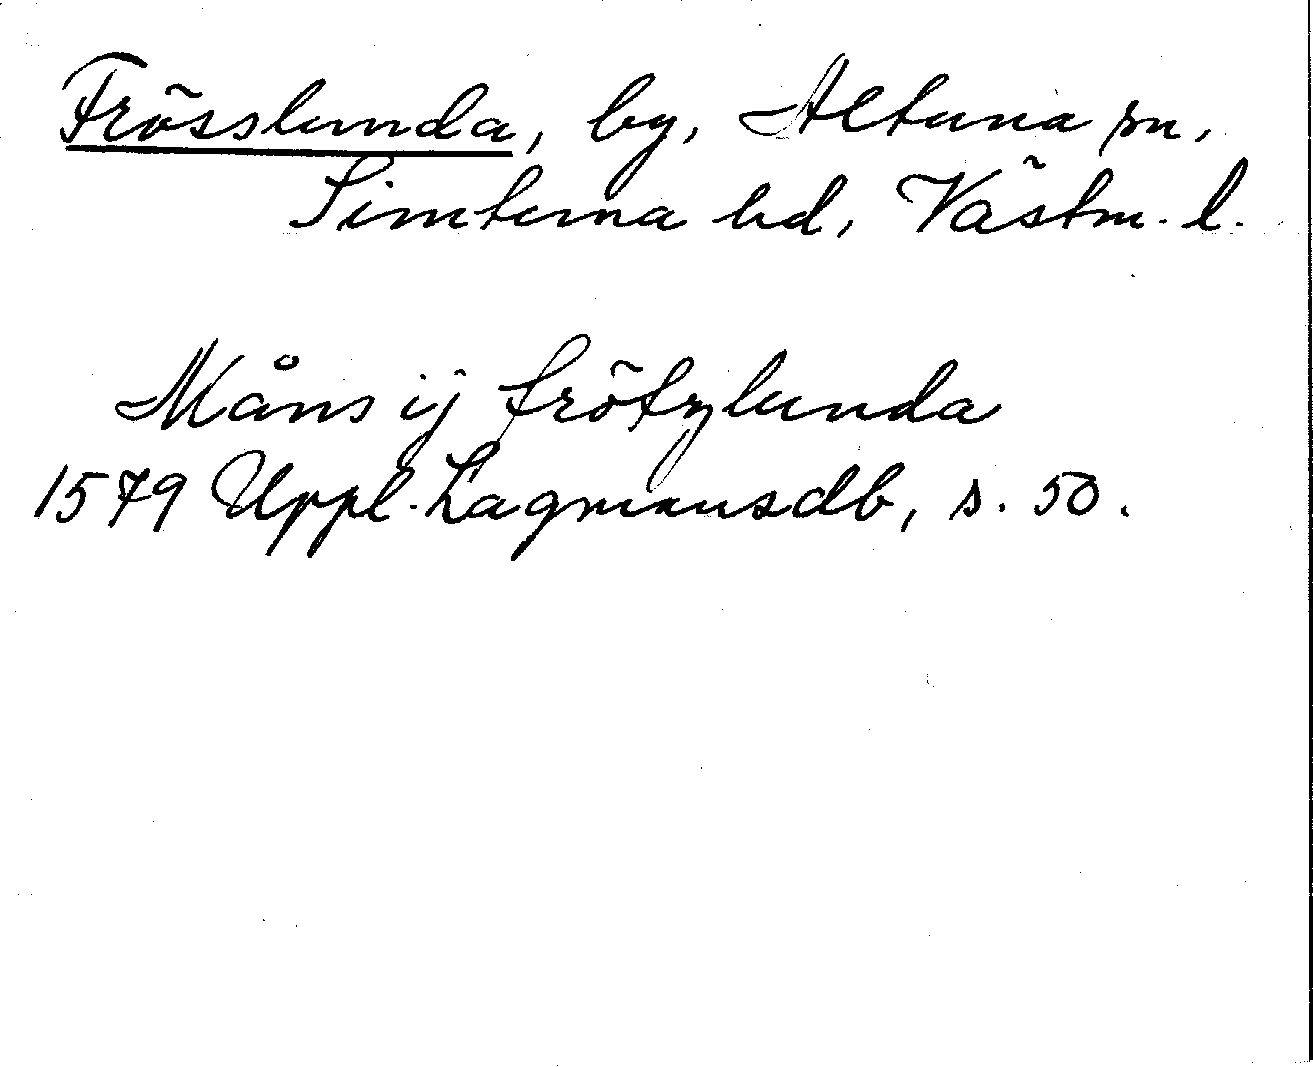 Frösslunda, by, Altuna sn,
Simtuna hd, Västm. l.
Måns ij frötzlunda
1579 Uppl. Lagmansdb, s. 50.